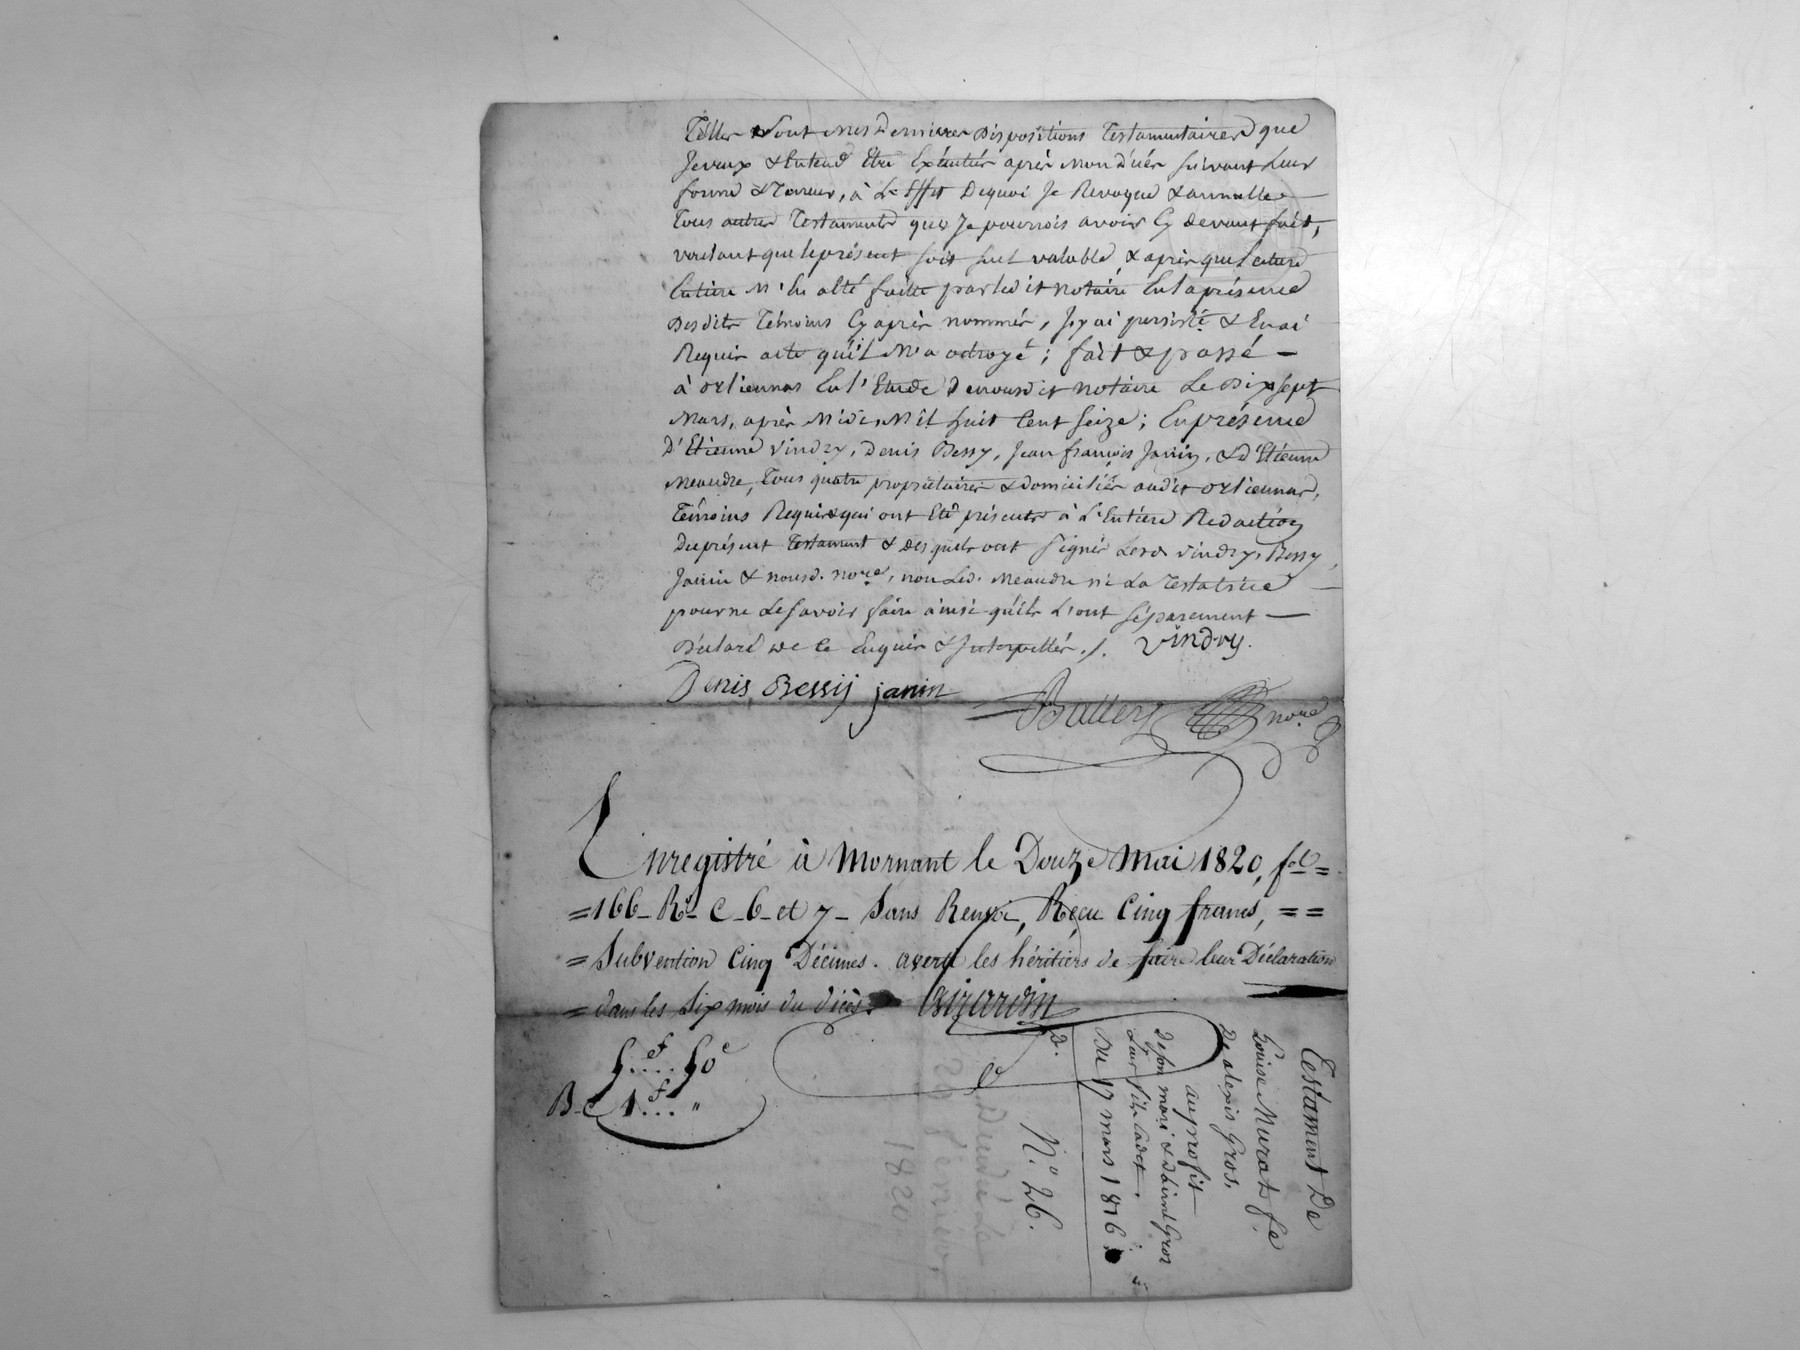 Telles Sont mes Dernieres Dispositions Testamentaires que
Je veux & Entend Etre Exécutées après mon d'écés suivant Leur
forme & Teneur, à L'Effet Dequoi Je Revoque & annulle
Tous autres Testaments que Je pourrois avoir Cy devant fait,
voulant que le présent soit seul valable, & après que Lecture
Entière M'En a Eté faitte par led it notaire En la présence
Desdits Témoins Cy après nommés, J'y ai persisté & En ai
Requis acte qu'il M'a octroyé ; fait & passé
à orlienas En l'Etude De nousdit notaire Le Dix sept
Mars, après Midi, Mil huit Cent Seize ; En présence
D'Etienne Vindry, Denis Bessy, Jean françois Janin, & d'Etienne
Meaudre, Tous quatre propriétaires & domiciliés audit orlienas,
Témoins Requis & qui ont Eté présents à L'Entière Redaction
Du présent Testament & desquels ont Signé Lesd. Vindry, Bessy,
Janin & nousd. nore, non Led. Meaudre ni La Testatrice
pour ne Le savoir faire ainsi qu'ils L'ont Séparement
Déclaré de Ce Enquis & Interpellés ./. vindry.
Denis Bessij janin
nore
Enregistré à Mornant le Douze Mai 1820, fol =
= 166 - Ro - C - 6 - et 7 - Sans Renvoi, Reçu Cinq francs, = =
= Subvention Cinq Décimes. averti les héritiers de faire leur Déclaration
= dans les Six mois du décès. Girardin
5f....50c
B-C 1f... "
Testament De
Louise Murat fe
De alexis Gros,
au profit
De son mari & d'aimé Gros
Leur fils Cadet.
Du 17 mars 1816.
No. 26.
1820